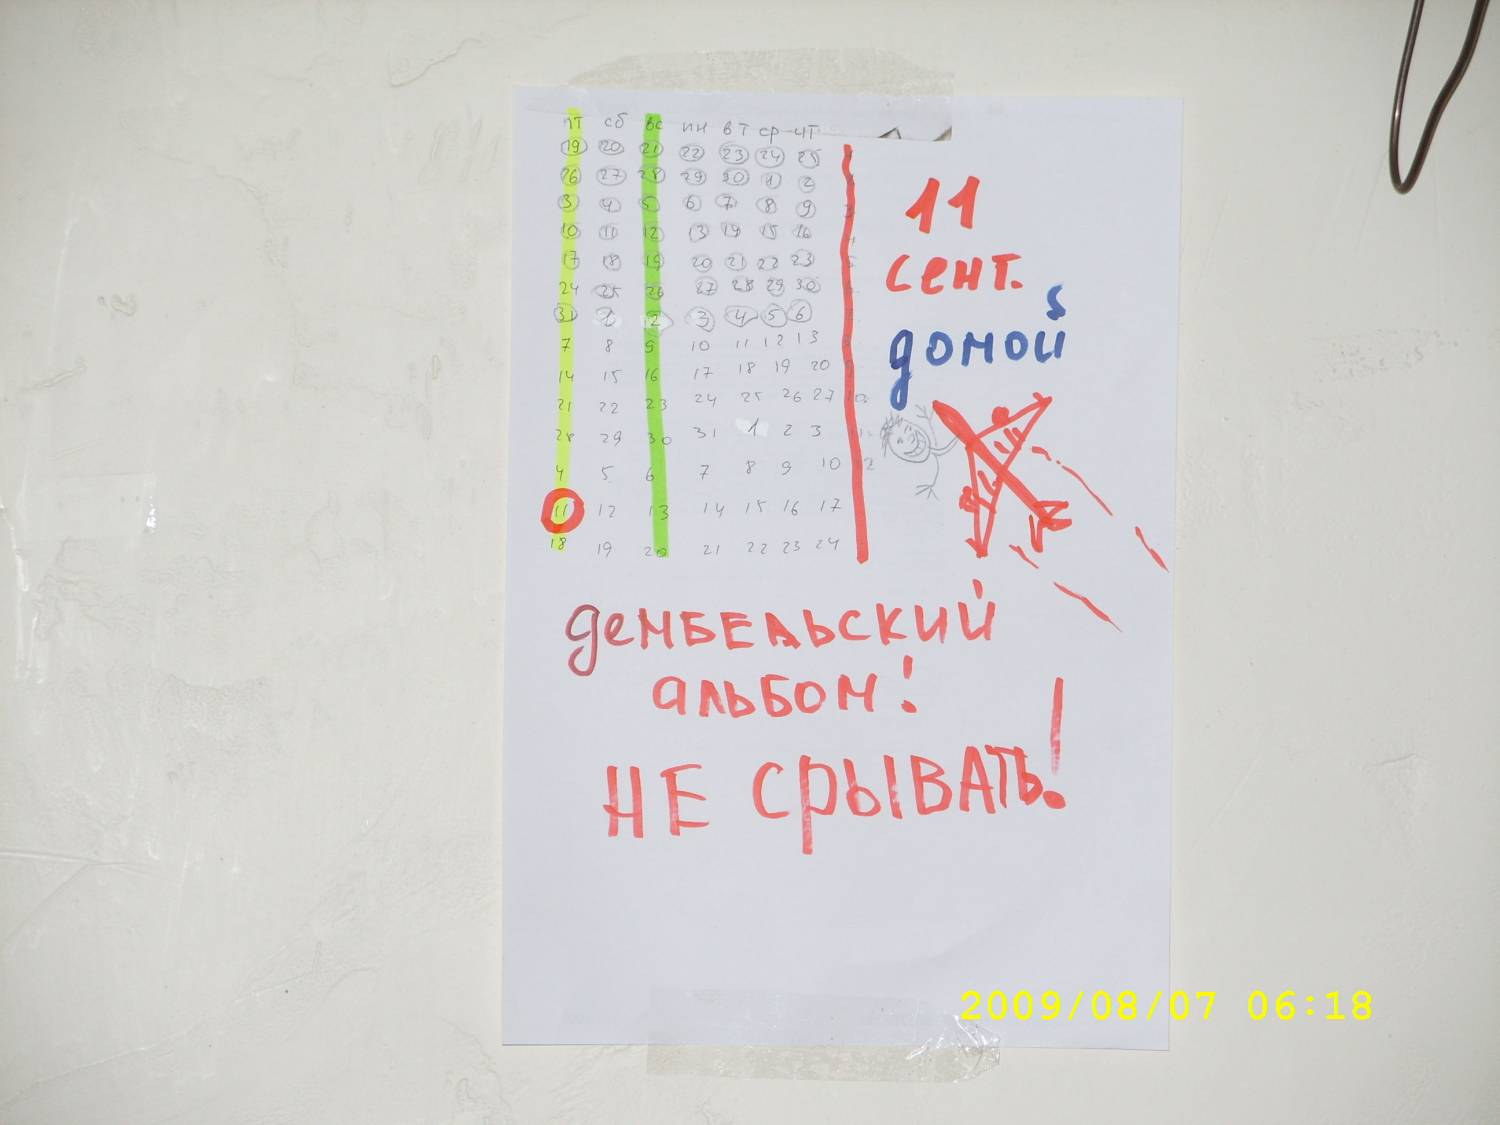 пт сб вс пн вт ср чт
19 20 21 22 23 24 25
26 27 28 29 30 1 2
3 4 5 6 7 8 9
10 11 12 13 14 15 16
17 18 19 20 21 22 23
24 25 26 27 28 29 30
31 1 2 3 4 5 6
7 8 9 10 11 12 13
14 15 16 17 18 19 20
21 22 23 24 25 26 27
28 29 30 31 1 2 3
4 5 6 7 8 9 10
11 12 13 14 15 16 17
18 19 20 21 22 23 24
11
сент.
домой
дембельский
альбом!
НЕ СРЫВАТЬ!
2009/08/07 06:18